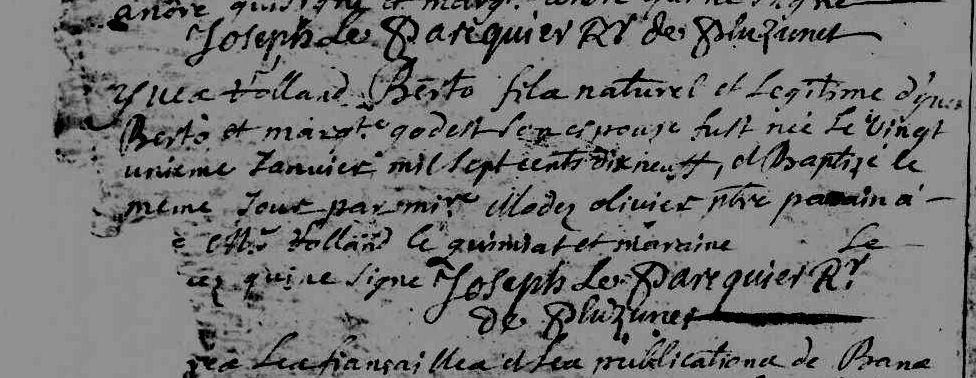 andré qui signe et marg.te qui ne signe
Joseph Le Parcquier Rr. de Pluzunet
Yves Rolland Berto fils naturel et Legitime d'yves
Berto et marg.te godest son espouse fust née Le Vingt
unieme Janvier mil sept cents dix neuff, et Baptizé le
meme Jour par mi.re Modez olivier pbre parain a
Rolland le quiniat et maraine Le
qui ne signe Joseph Le Parcquier Rr.
de Pluzunet
Les fiançailles et Les publications de Bans